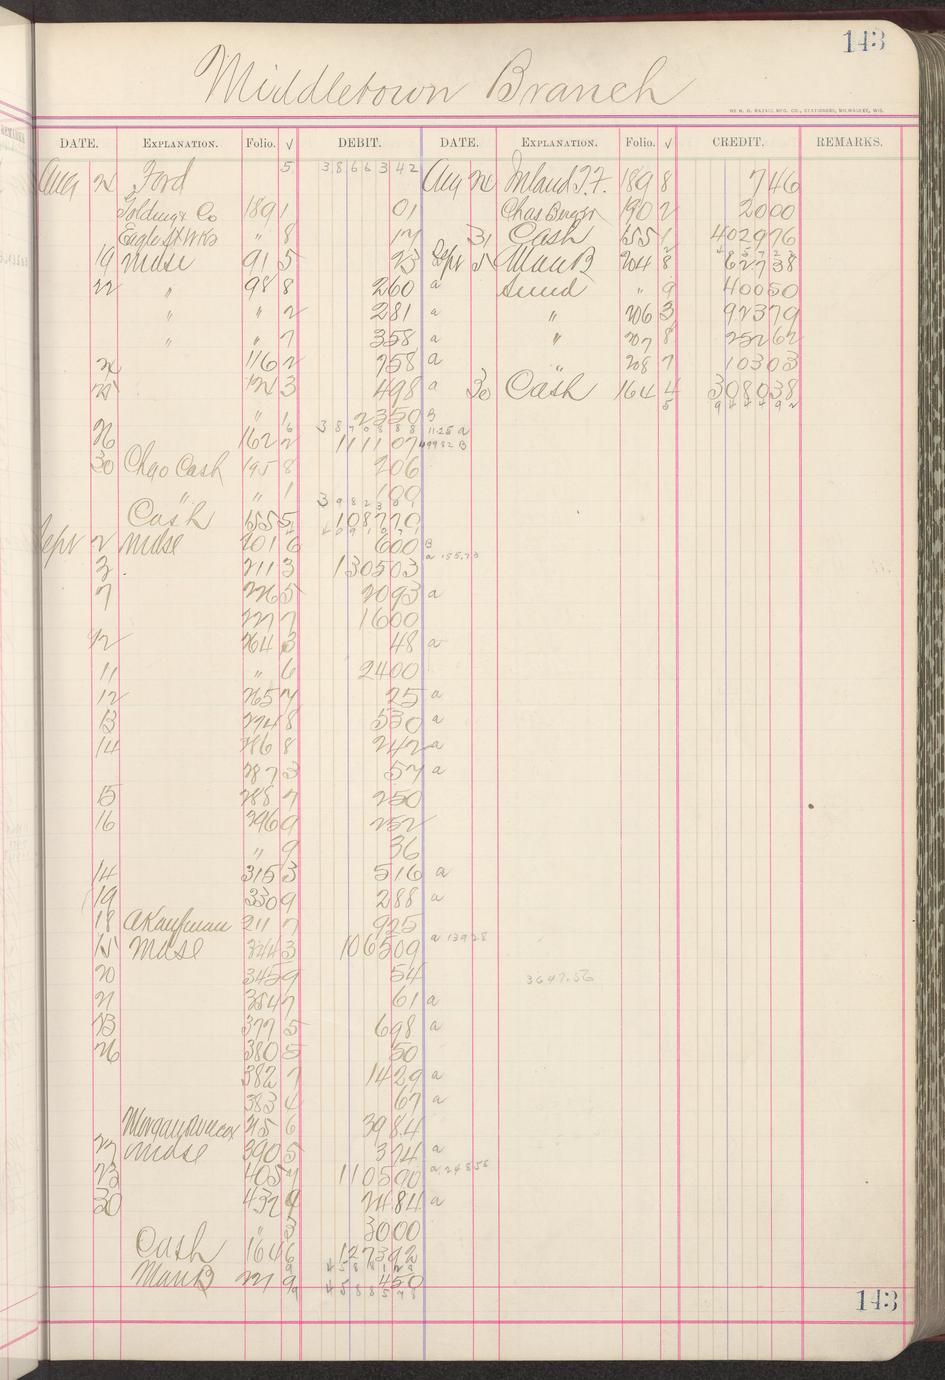 143
Middletown Branch
DATE. EXPLANATION. Folio. √ DEBIT. DATE. EXPLANATION. Folio. √ CREDIT. REMARKS.
Aug 24 Ford 5 3866342 Aug 24 189 8 746
Golding & Co 189 1 01 Chas Berger 190 2 2000
Eagle " 8 17 31 Cash 155 1 402976
19 Mdse 91 5 23 Sept 5 Man B 204 8 62738
22 " 98 8 260 a 5 " 9 40050
" " 2 281 a " 206 3 92379
" " 7 358 a " 207 8 25262
24 116 2 758 a " 208 7 10303
25 124 3 498 a 30 Cash 164 4 308038
" 1 2350 B
26 162 2 111107
30 Chgo Cash 195 8 206
" " 1 100
Cash 155 5 108770
Sept 2 Mdse 201 6 600 B
3 211 3 130503 a 155.73
7 226 5 2093 a
227 7 1600
12 264 3 48 a
11 " 6 2400
12 265 7 25 a
13 274 8 530 a
14 286 8 242 a
287 3 57 a
15 288 7 250
16 296 9 252
" 9 36
14 315 3 516 a
19 330 9 288 a
18 A Kaufman 211 7 925
15 Mdse 344 3 106509 a 139 28
20 345 9 54 3647.56
21 354 7 61 a
23 377 5 698 a
26 380 5 50
382 7 1429 a
383 4 67 a
Morgan & Wilcox 215 6 3984
27 Mdse 390 5 374 a
23 405 7 110590 a 248 58
30 432 9 2484 a
" 3 3000
Cash 164 6 127392
Man B 221 9 450
143